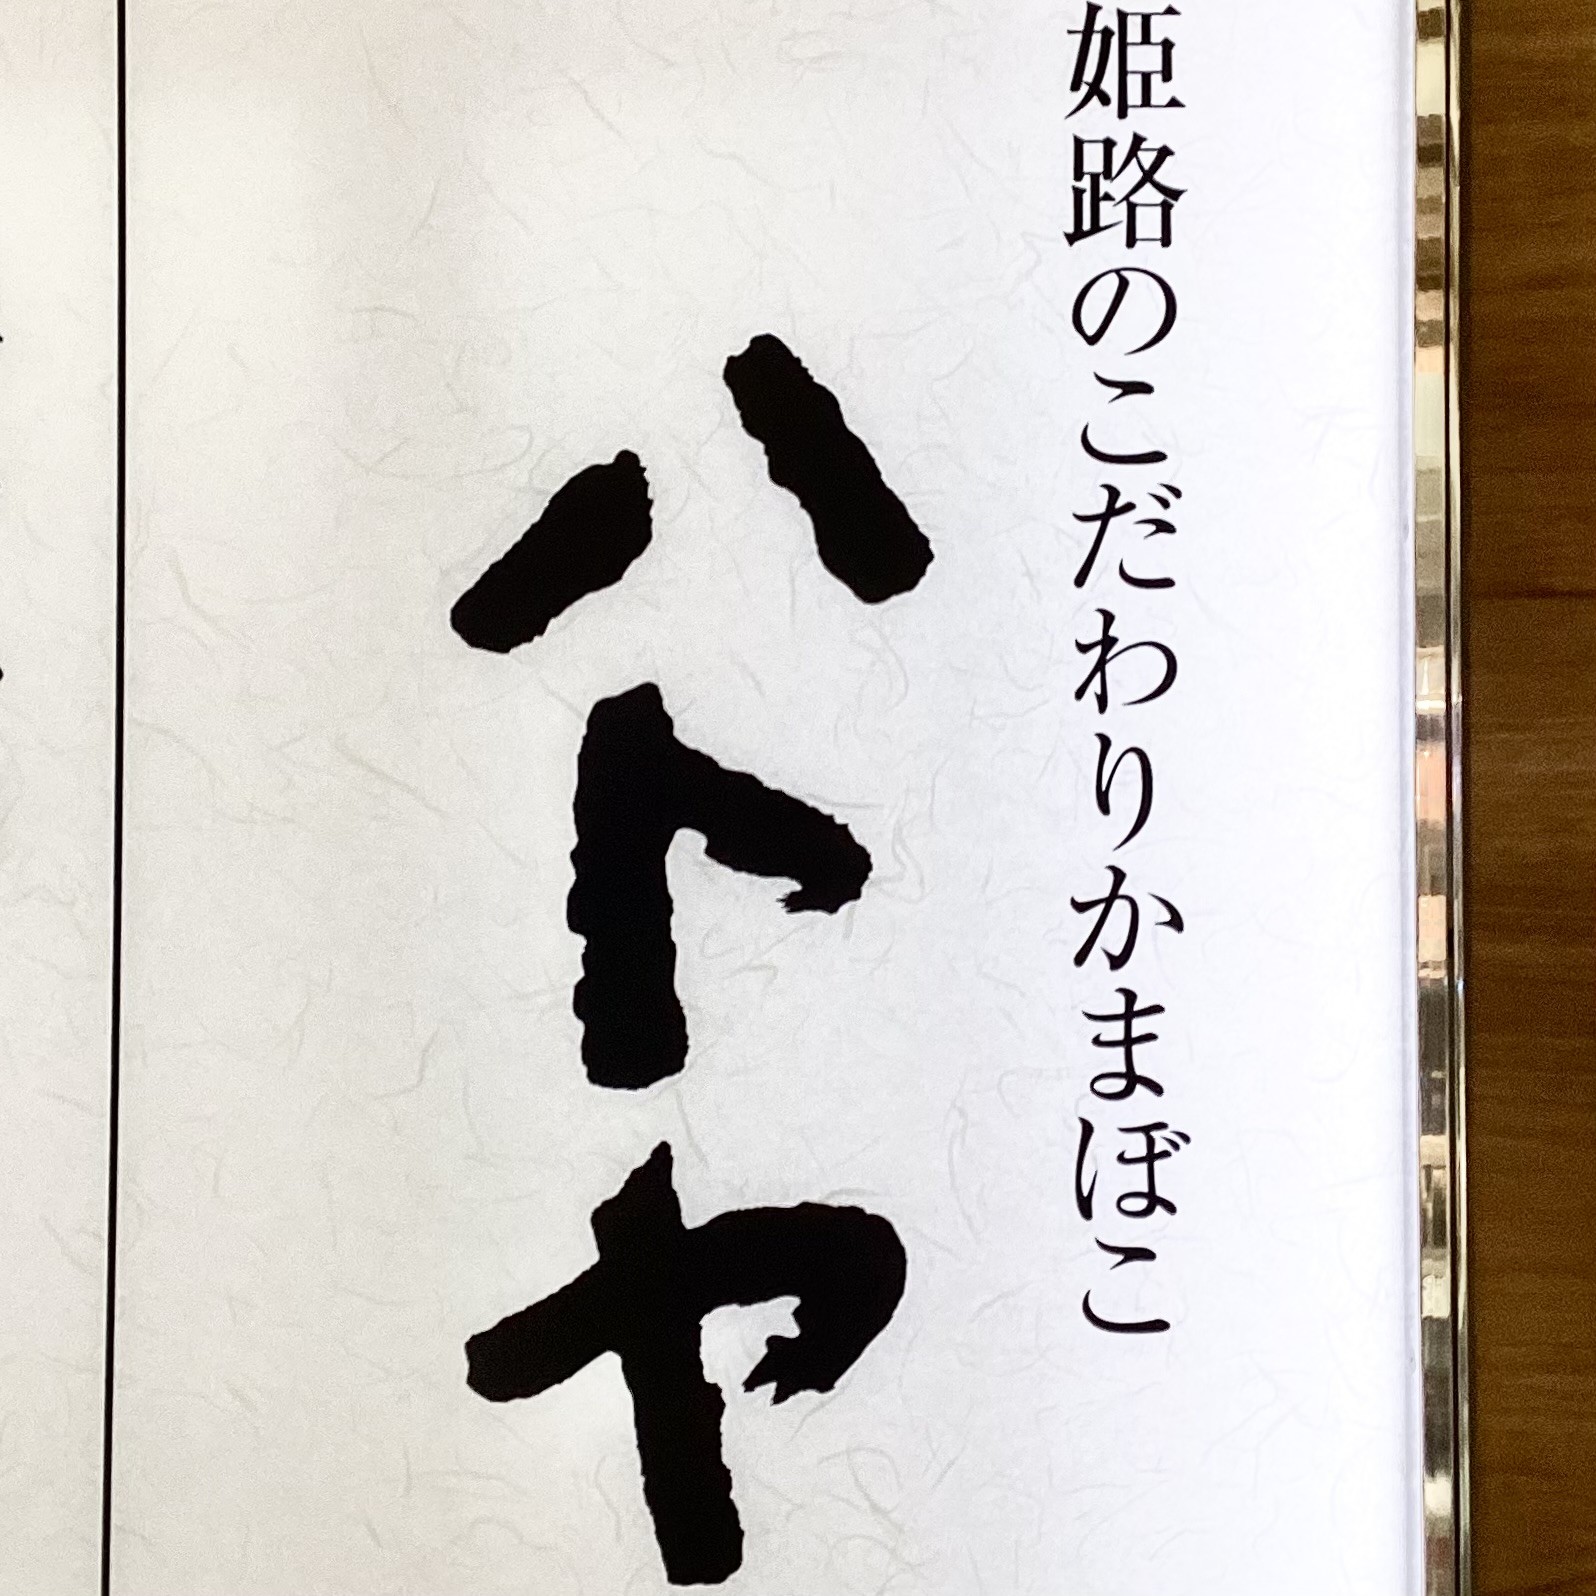 姫路のこだわりかまぼこ
ハトヤ